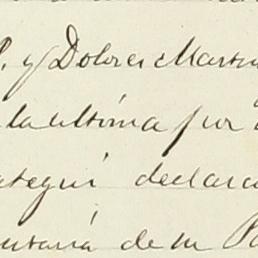 P. y Dolores Martin
la última por
ategui declara
ntaria de su Pa